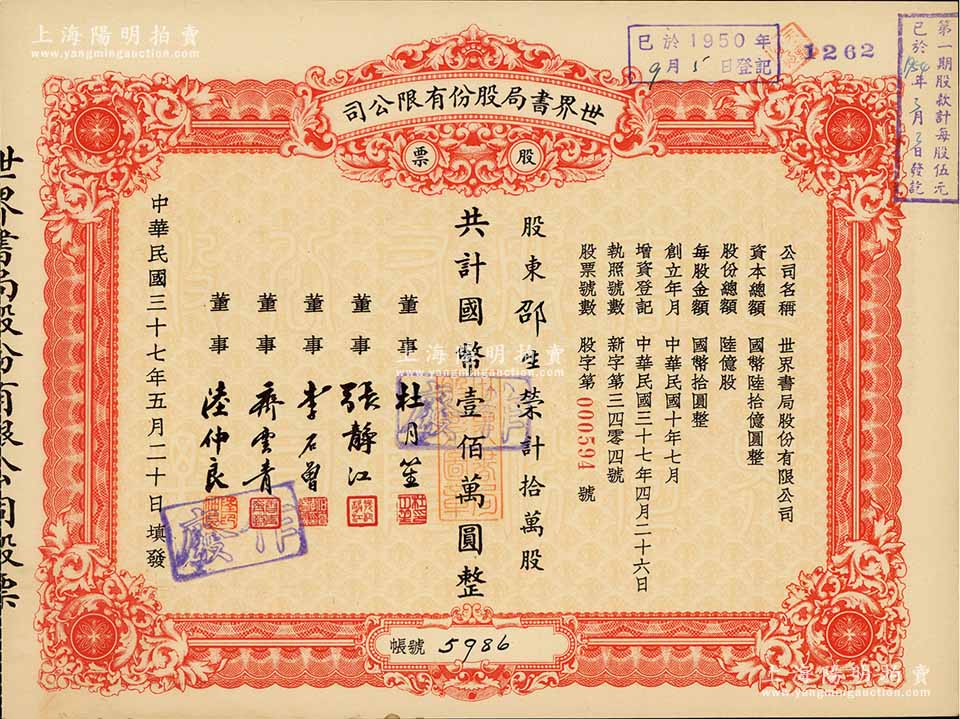 上海陽明拍賣
www.yangmingauction.com
已於1950年
9月5日登記
1262
第一期股款計每股伍元
已於1954年 月 日發訖
世界書局股份有限公司
股票
公司名稱 世界書局股份有限公司
資本總額 國幣陸拾億圓整
股份總額 陸億股
每股金額 國幣拾圓整
創立年月 中華民國十年七月
增資登記 中華民國三十七年四月二十六日
執照號數 新字第三四零四號
股票號數 股字第 000594 號
股東邵 榮計拾萬股
共計國幣壹佰萬圓整
董事 杜月笙
董事 張靜江
董事 李石曾
董事 齊雲青
董事 陸仲良
作廢
作廢
中華民國三十七年五月二十日填發
帳號 5986
世界書局股份有限公司股票
上海陽明拍賣
www.yangmingauction.com
上海陽明拍賣
www.yangmingauction.com